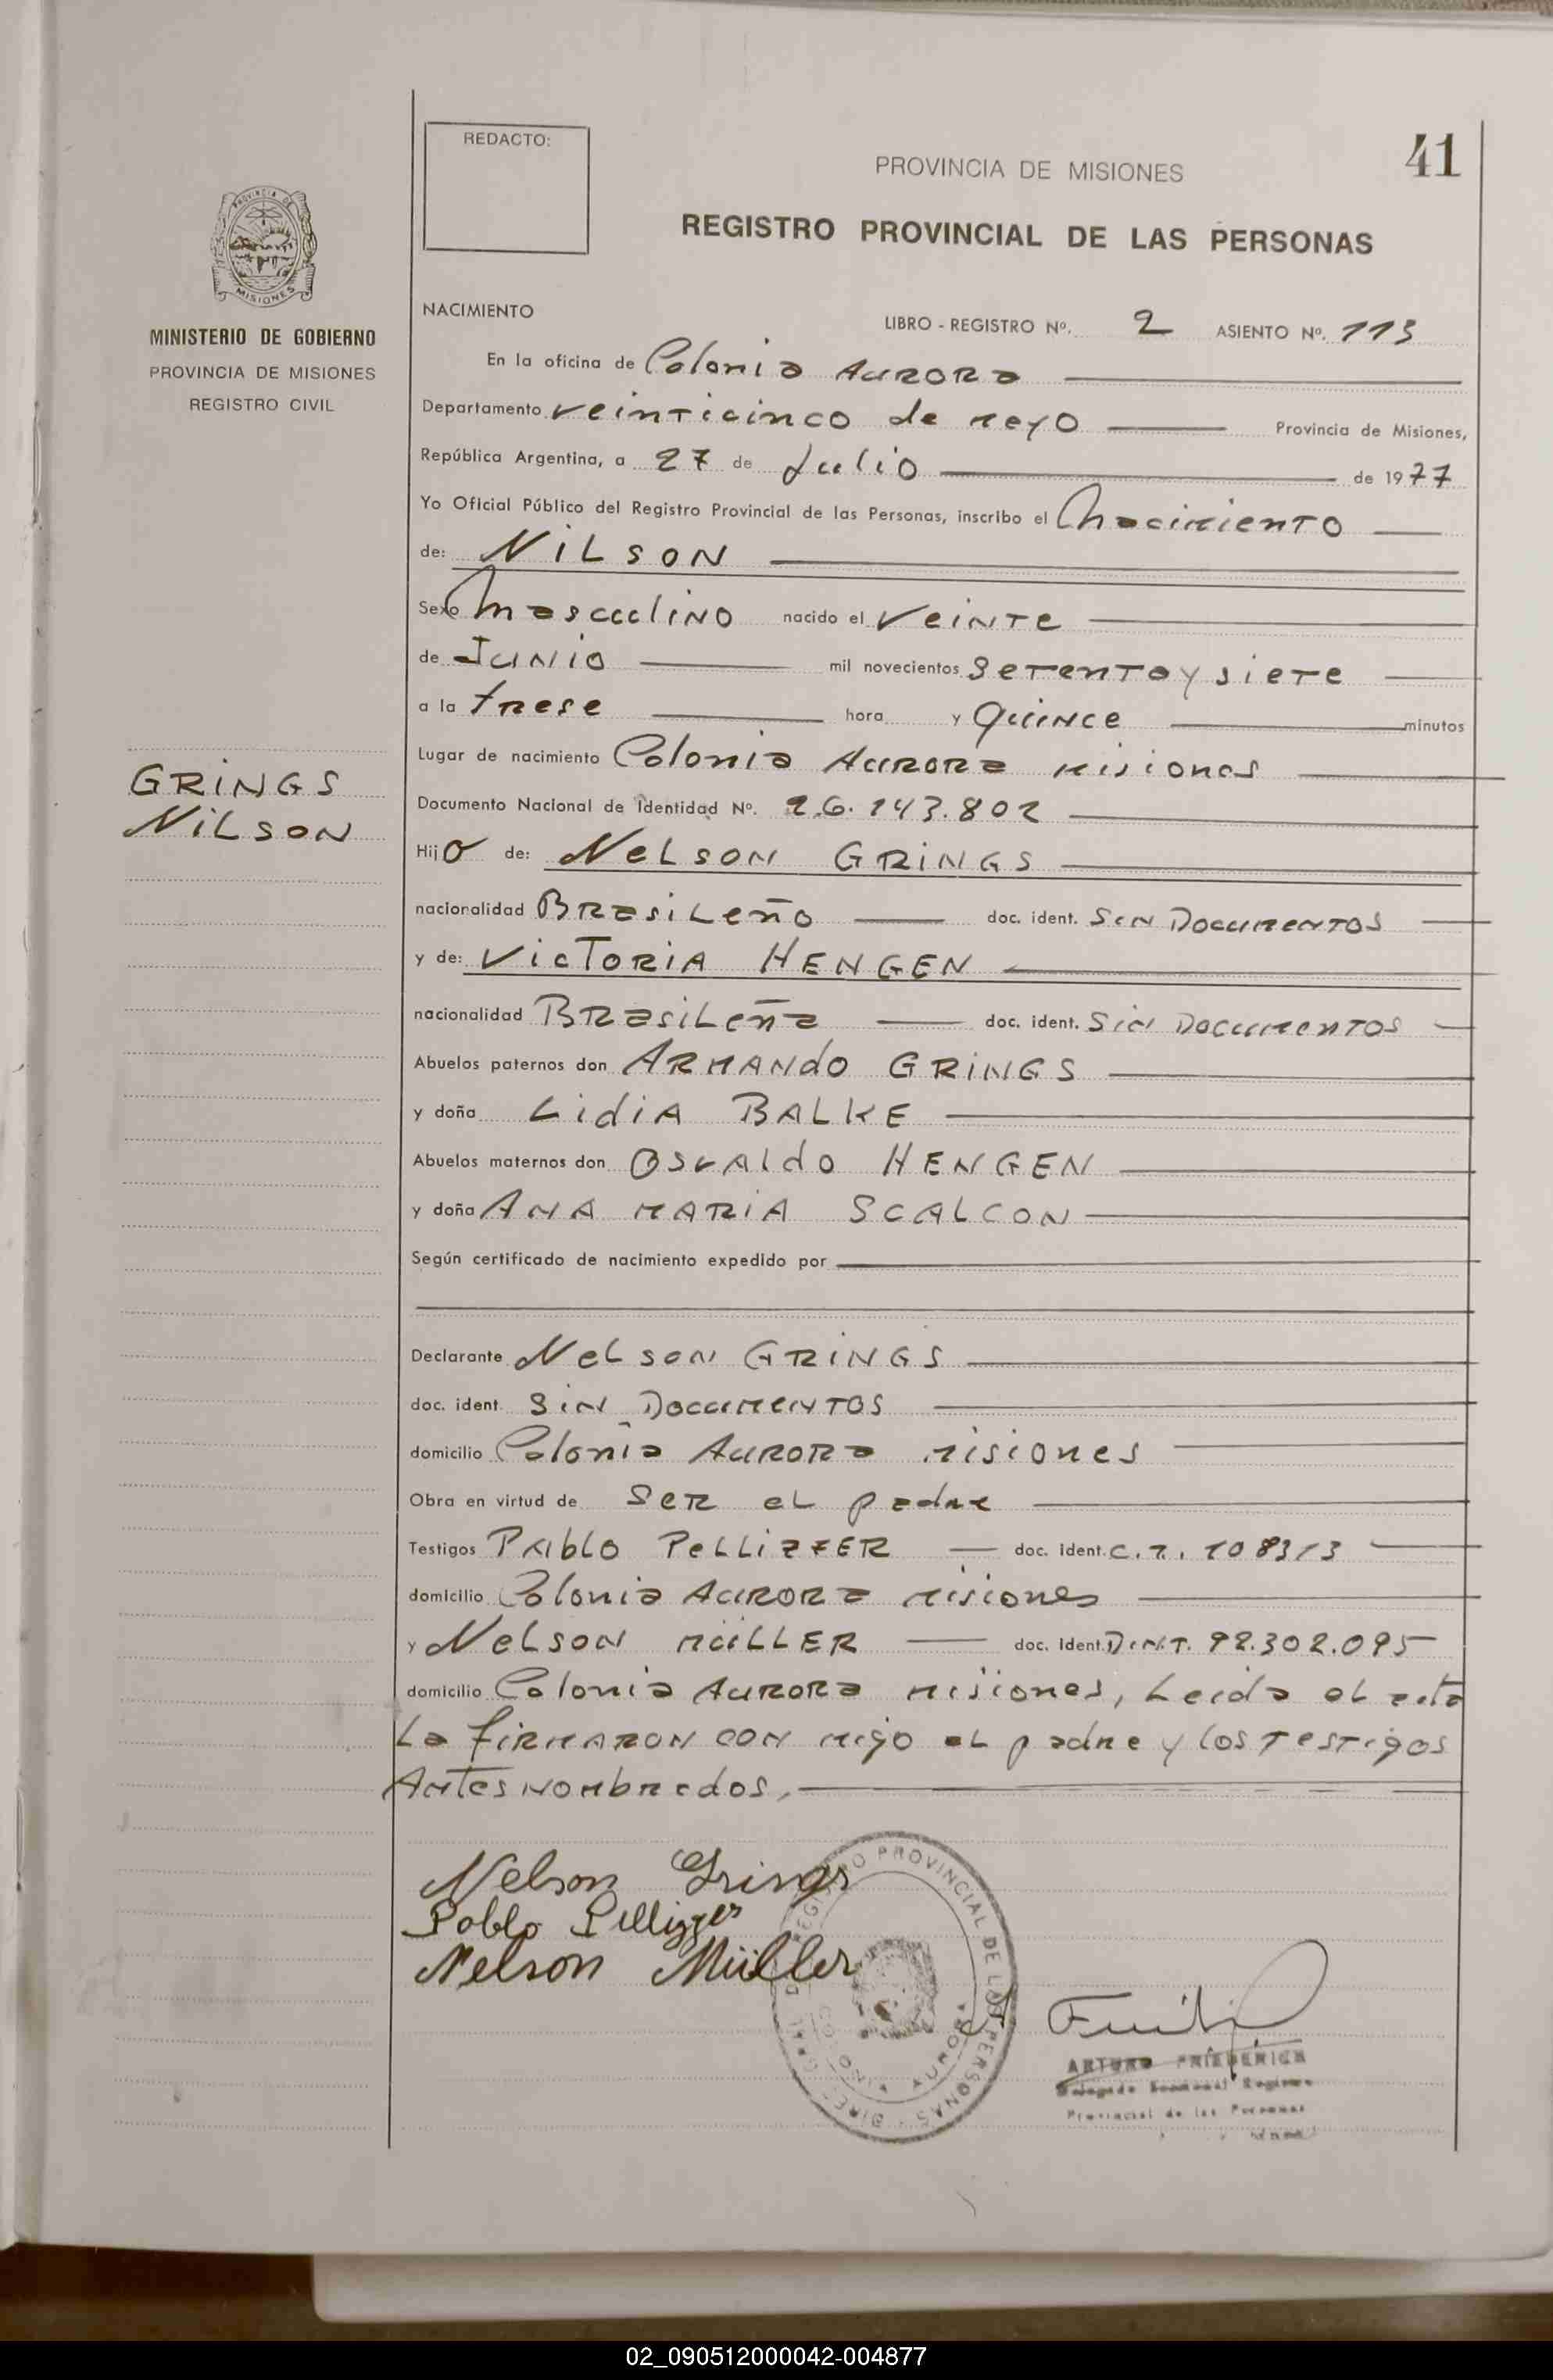 REDACTO:
41
PROVINCIA DE MISIONES
REGISTRO PROVINCIAL DE LAS PERSONAS
PROVINCIA DE
MISIONES
MINISTERIO DE GOBIERNO
PROVINCIA DE MISIONES
REGISTRO CIVIL
NACIMIENTO
LIBRO - REGISTRO Nº. 2 ASIENTO Nº. 113
En la oficina de Colonia AURORA
Departamento veinticinco de mayo Provincia de Misiones,
República Argentina, a 27 de Julio de 1977
Yo Oficial Público del Registro Provincial de las Personas, inscribo el Nacimiento
de: NILSON
Sexo Masculino nacido el veinte
de Junio mil novecientos setenta y siete
a la trese hora y Quince minutos
Lugar de nacimiento Colonia Aurora misiones
GRINGS
NILSON
Documento Nacional de Identidad Nº. 26.143.802
Hijo de: NELSON GRINGS
nacionalidad Brasileño doc. ident. Sin Documentos
y de: VICTORIA HENGEN
nacionalidad Brasileña doc. ident. Sin Documentos
Abuelos paternos don ARMANDO GRINGS
y doña LIDIA BALKE
Abuelos maternos don OSVALDO HENGEN
y doña ANA MARIA SCALCON
Según certificado de nacimiento expedido por
Declarante NELSON GRINGS
doc. ident. Sin Documentos
domicilio Colonia Aurora misiones
Obra en virtud de ser el padre
Testigos PABLO PELLIZZER doc. ident. C.I. 108313
domicilio Colonia Aurora misiones
y NELSON MÜLLER doc. Ident. D.N.I. 92.302.095
domicilio Colonia Aurora misiones, Leida el acta
La firmaron con migo el padre y los testigos
Antes nombrados,
Nelson Grings
Pablo Pellizzer
Nelson Müller
REGISTRO PROVINCIAL DE LAS PERSONAS
COLONIA AURORA
ARTURO FRIEDERICH
Delegado Seccional Registro
Provincial de las Personas
02_090512000042-004877